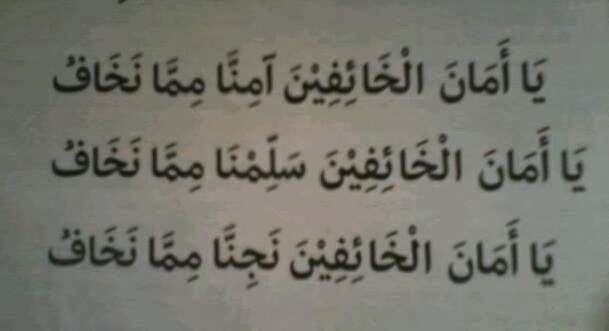 يَا أَمَانَ الْخَائِفِيْنَ آمِنَّا مِمَّا نَخَافُ
يَا أَمَانَ الْخَائِفِيْنَ سَلِّمْنَا مِمَّا نَخَافُ
يَا أَمَانَ الْخَائِفِيْنَ نَجِنَّا مِمَّا نَخَافُ